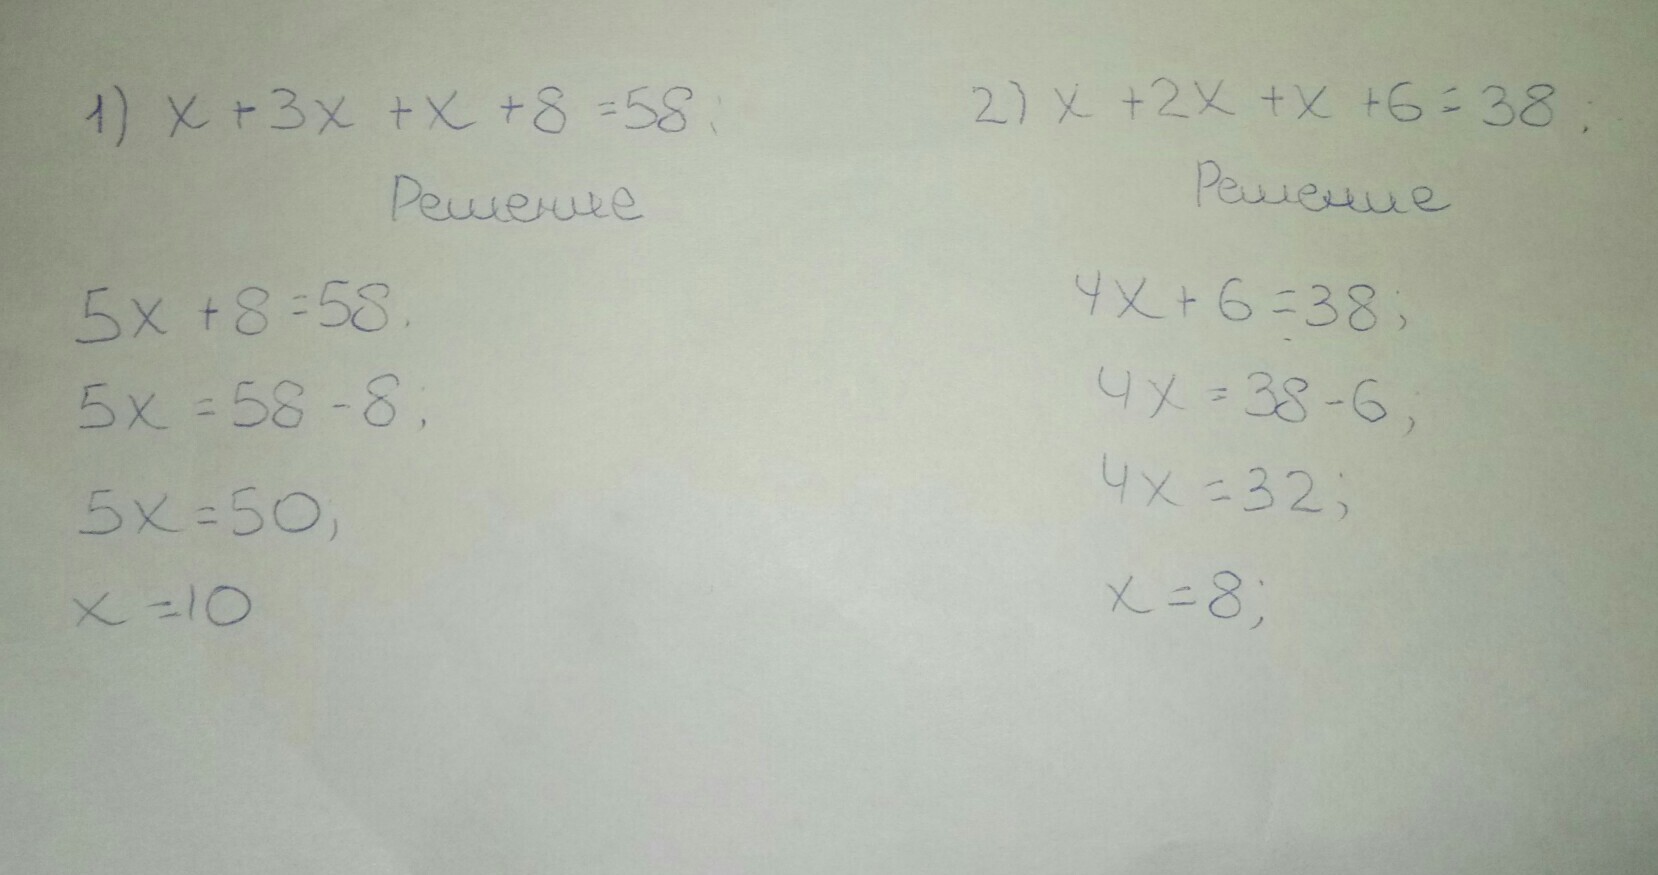 1) x + 3x + x + 8 = 58;
Решение
5x + 8 = 58.
5x = 58 - 8;
5x = 50;
x = 10
2) x + 2x + x + 6 = 38;
Решение
4x + 6 = 38;
4x = 38 - 6;
4x = 32;
x = 8;